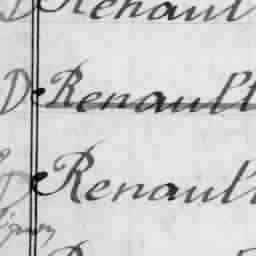 D Renault
D Renault
D Renault